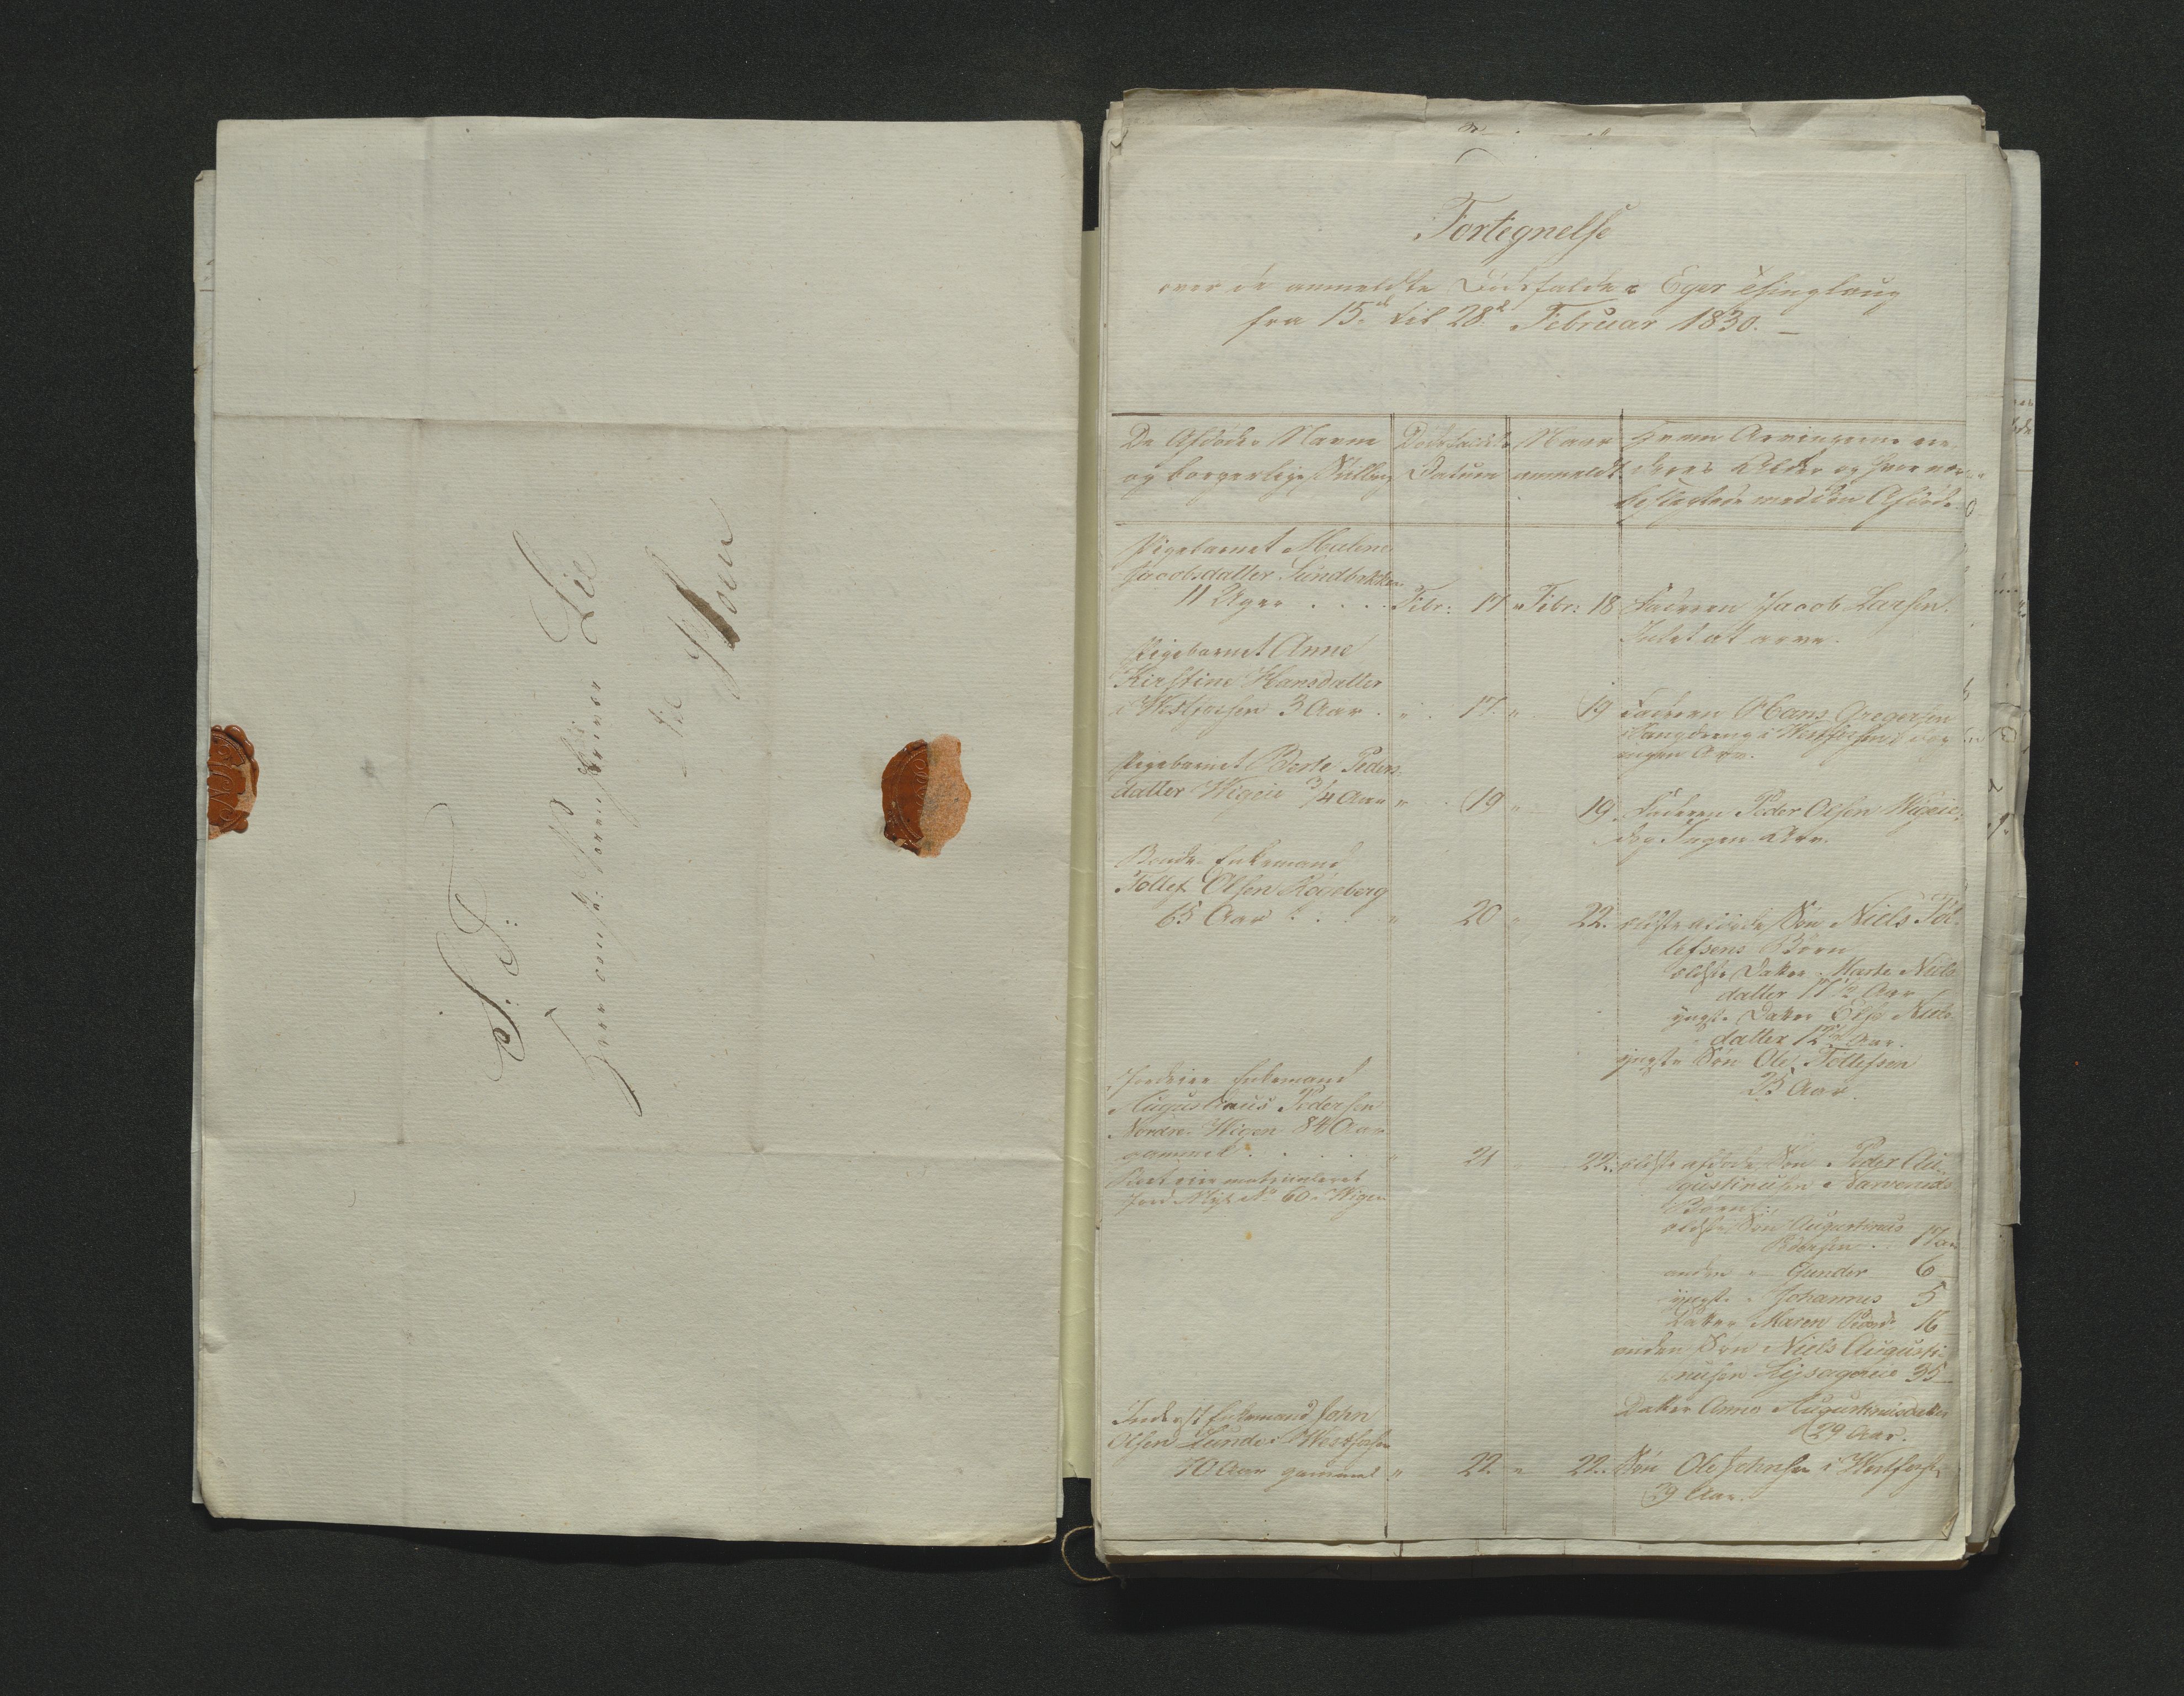 S. T.
Herr Sorenskriver Lie
til
Hoen
Fortegnelse
over de anmeldte Dødsfalde i Eger Thinglaug
fra 15de til 28de Februar 1830. —
De Afdødes Navne
og borgerlige Stilling
Dødsfaldets
Datum
Naar
anmeldt
Hvem Arvingerne ere
deres Alder og hvor nær
beslægtede med den Afdøde
Pigebarnet Mulene
Jacobsdatter Sundbakken
11 Uger . . . . Febr: 17 " Febr: 18 Faderen Jacob Larsen.
Intet at arve.
Pigebarnet Anne
Kirstine Hansdatter
i Westfossen 3 Aar . " . 17. " 19 Faderen Hans Gregersen
i Westfossen, dog
ingen Arv.
Pigebarnet Dorte Peders
datter Wigeie 3/4 Aar " . 19 " 19. Faderen Peder Olsen Wigeie,
dog Ingen Arv.
Bonde Enkemand
Tollef Olsen Kogeberg
65 Aar . . . " 20 " 22. ældste afdøde Søn Niels Tol-
lefsens Børn
ældste Datter Marte Niels
datter 17 1/2 Aar
yngste Datter Else Niels-
datter 12 1/2 Aar.
yngste Søn Ole Tollefsen
23 Aar.
Jordeier Enkemand
Augustinus Pedersen
Nordre Wigen 84 Aar
gammel . . . . " 21 22. ældste afdøde Søn Peder Au-
gustinusen Narverud
Børn:
Bort eier matriculeret
Jord No 60. Wigen
ældste Søn Augustinus
Pedersen . . 17 Aar
anden " Gunder 6
yngste " Johannes 5
Datter Maren Pedersd. 16
anden Søn Niels Augusti-
nusen Lysagereie 35
Datter Anne Augustinusdatter
29 Aar.
Inderst Enkemand John
Olsen Lunde i Westfossen
70 Aar gammel " 22. " 22. Søn Ole Johnsen i Westfossen
39 Aar.